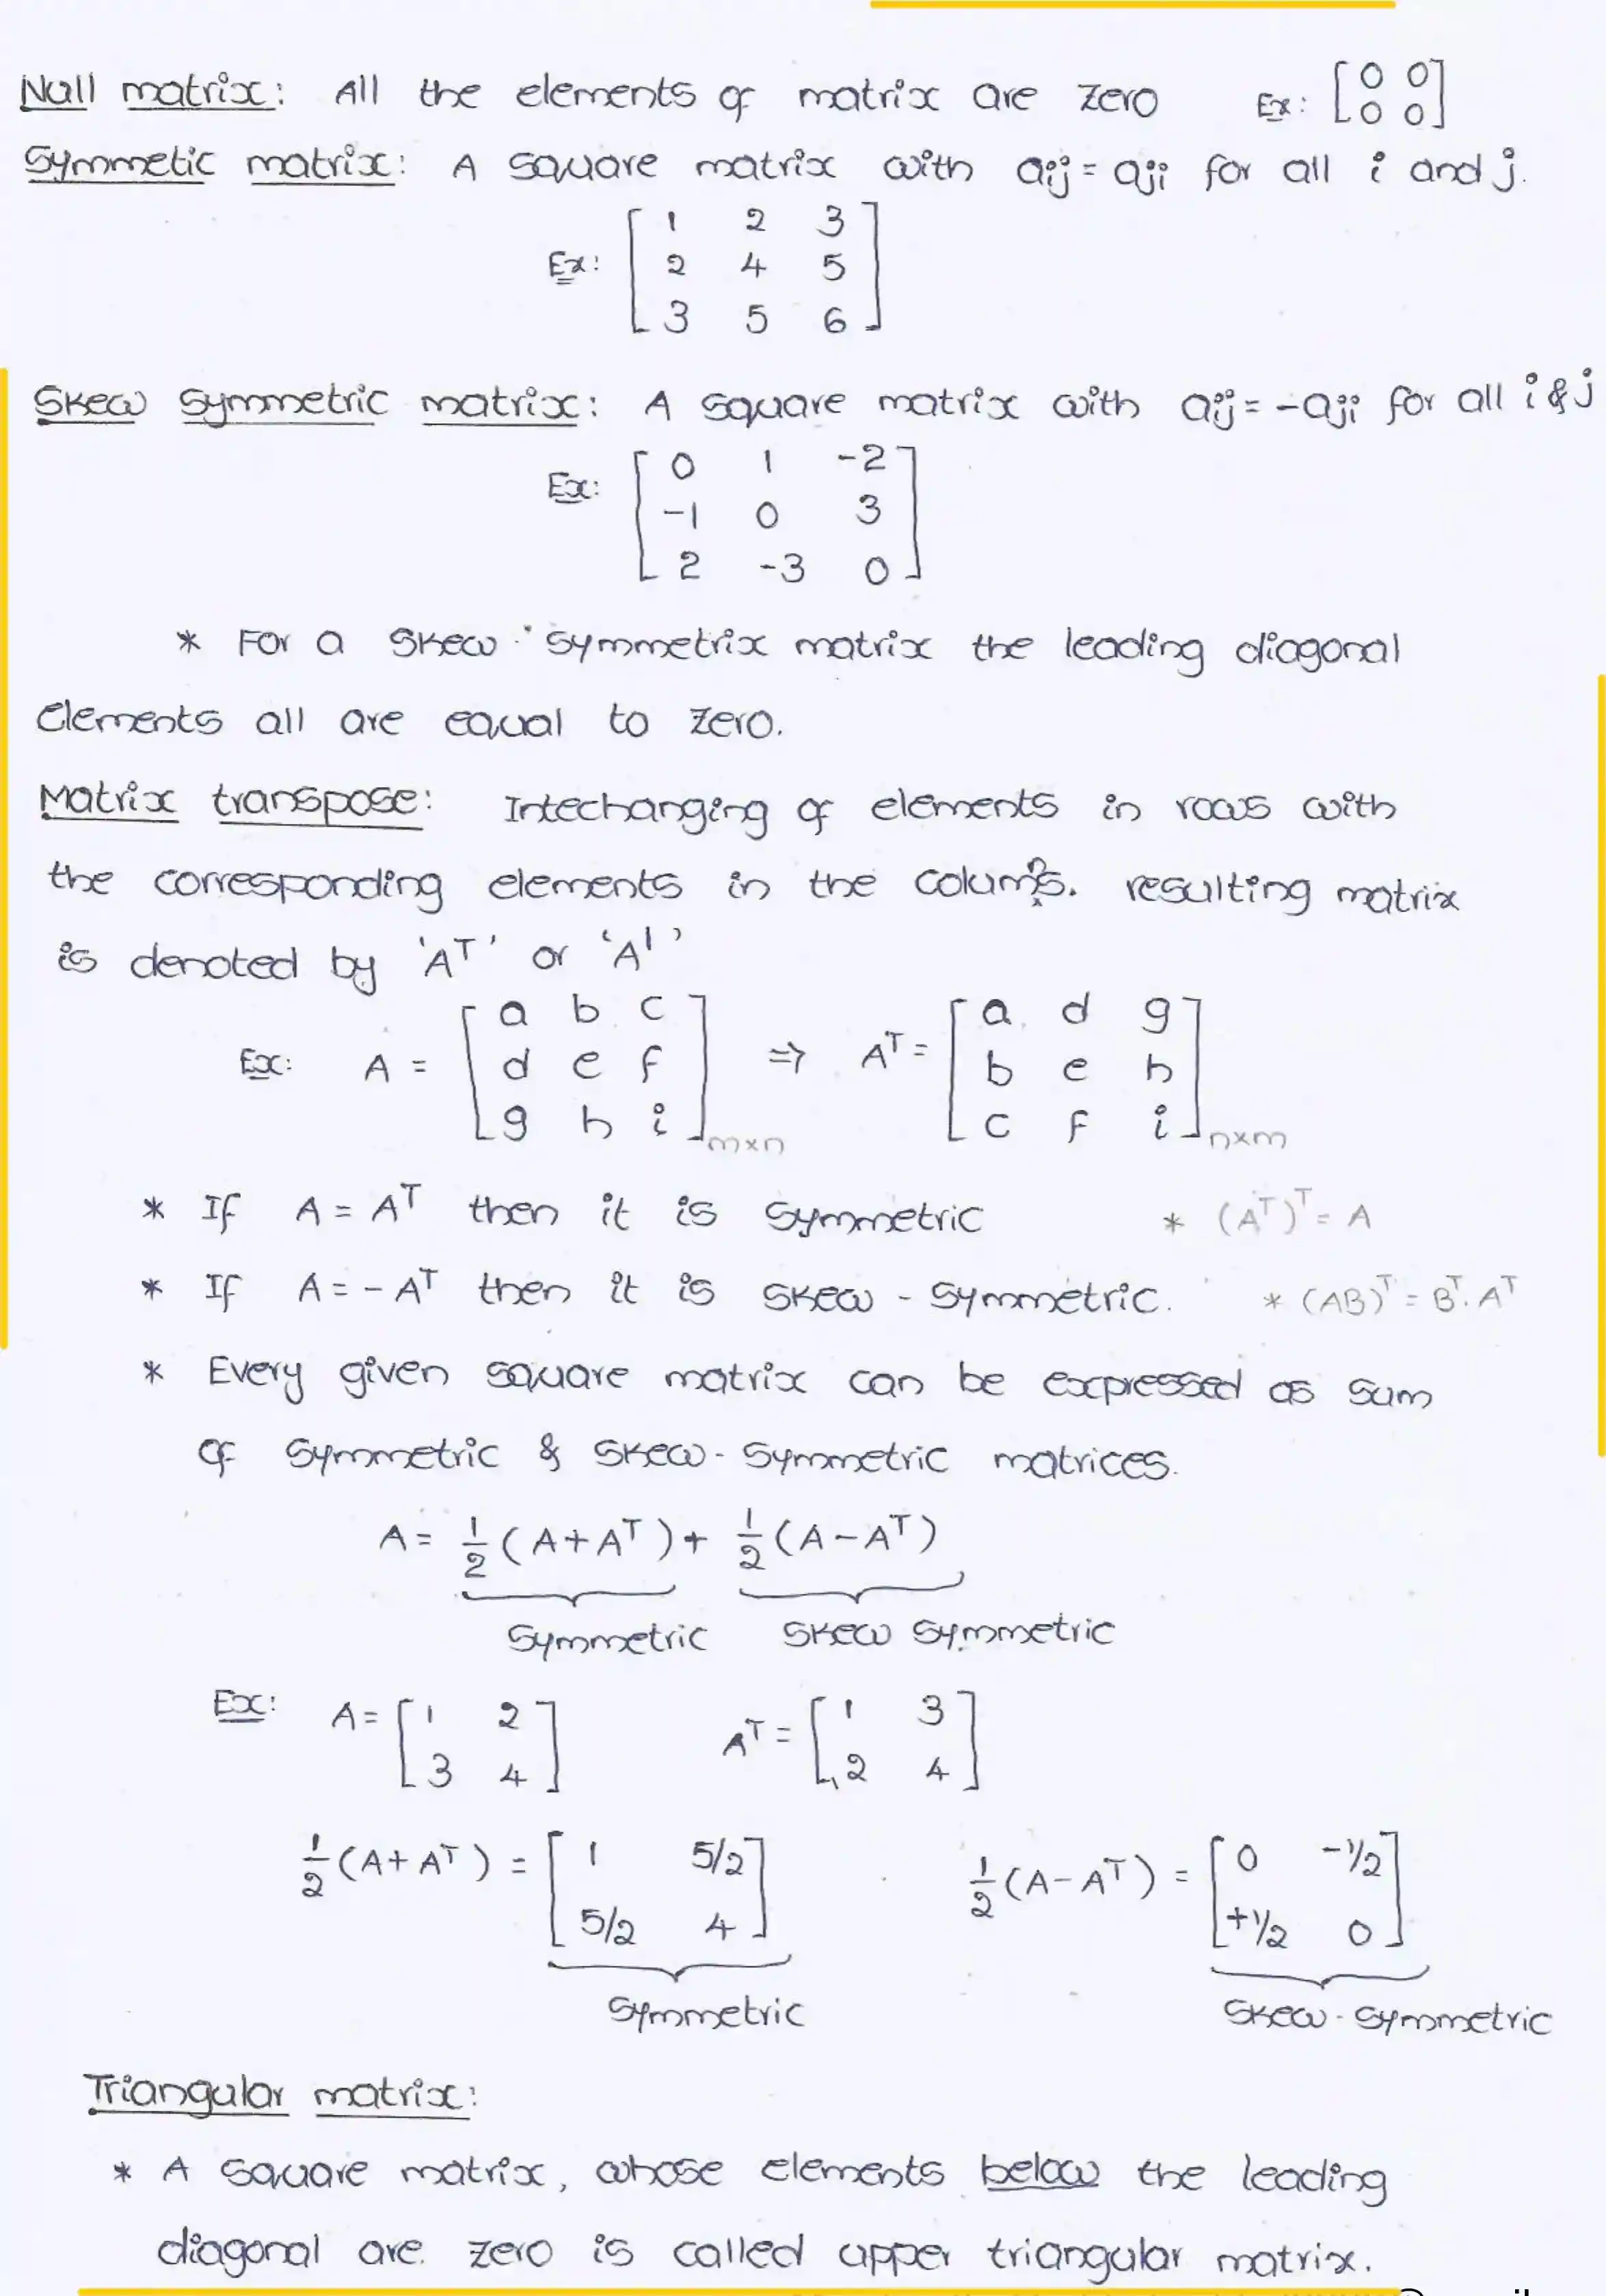 Null matrix: All the elements of matrix are zero Ex: [0 0
0 0]
Symmetic matrix: A square matrix with aij = aji for all i and j.
Ex: [1 2 3
2 4 5
3 5 6]
Skew symmetric matrix: A square matrix with aij = -aji for all i & j
Ex: [0 1 -2
-1 0 3
2 -3 0]
* For a skew symmetrix matrix the leading diagonal
elements all are equal to zero.
Matrix transpose: Intechanging of elements in rows with
the corresponding elements in the columns. resulting matrix
is denoted by 'Aᵀ' or 'A|'
Ex: A = [a b c
d e f
g h i]m×n ⇒ Aᵀ = [a d g
b e h
c f i]n×m
* If A = Aᵀ then it is symmetric * (Aᵀ)ᵀ = A
* If A = - Aᵀ then it is skew - symmetric. * (AB)ᵀ = Bᵀ. Aᵀ
* Every given square matrix can be expressed as sum
of symmetric & skew - symmetric matrices.
A = 1/2 (A + Aᵀ) + 1/2 (A - Aᵀ)
symmetric skew symmetric
Ex: A = [1 2
3 4] Aᵀ = [1 3
2 4]
1/2 (A + Aᵀ) = [1 5/2
5/2 4] 1/2 (A - Aᵀ) = [0 -1/2
+1/2 0]
symmetric skew - symmetric
Triangular matrix:
* A square matrix, whose elements below the leading
diagonal are zero is called upper triangular matrix.